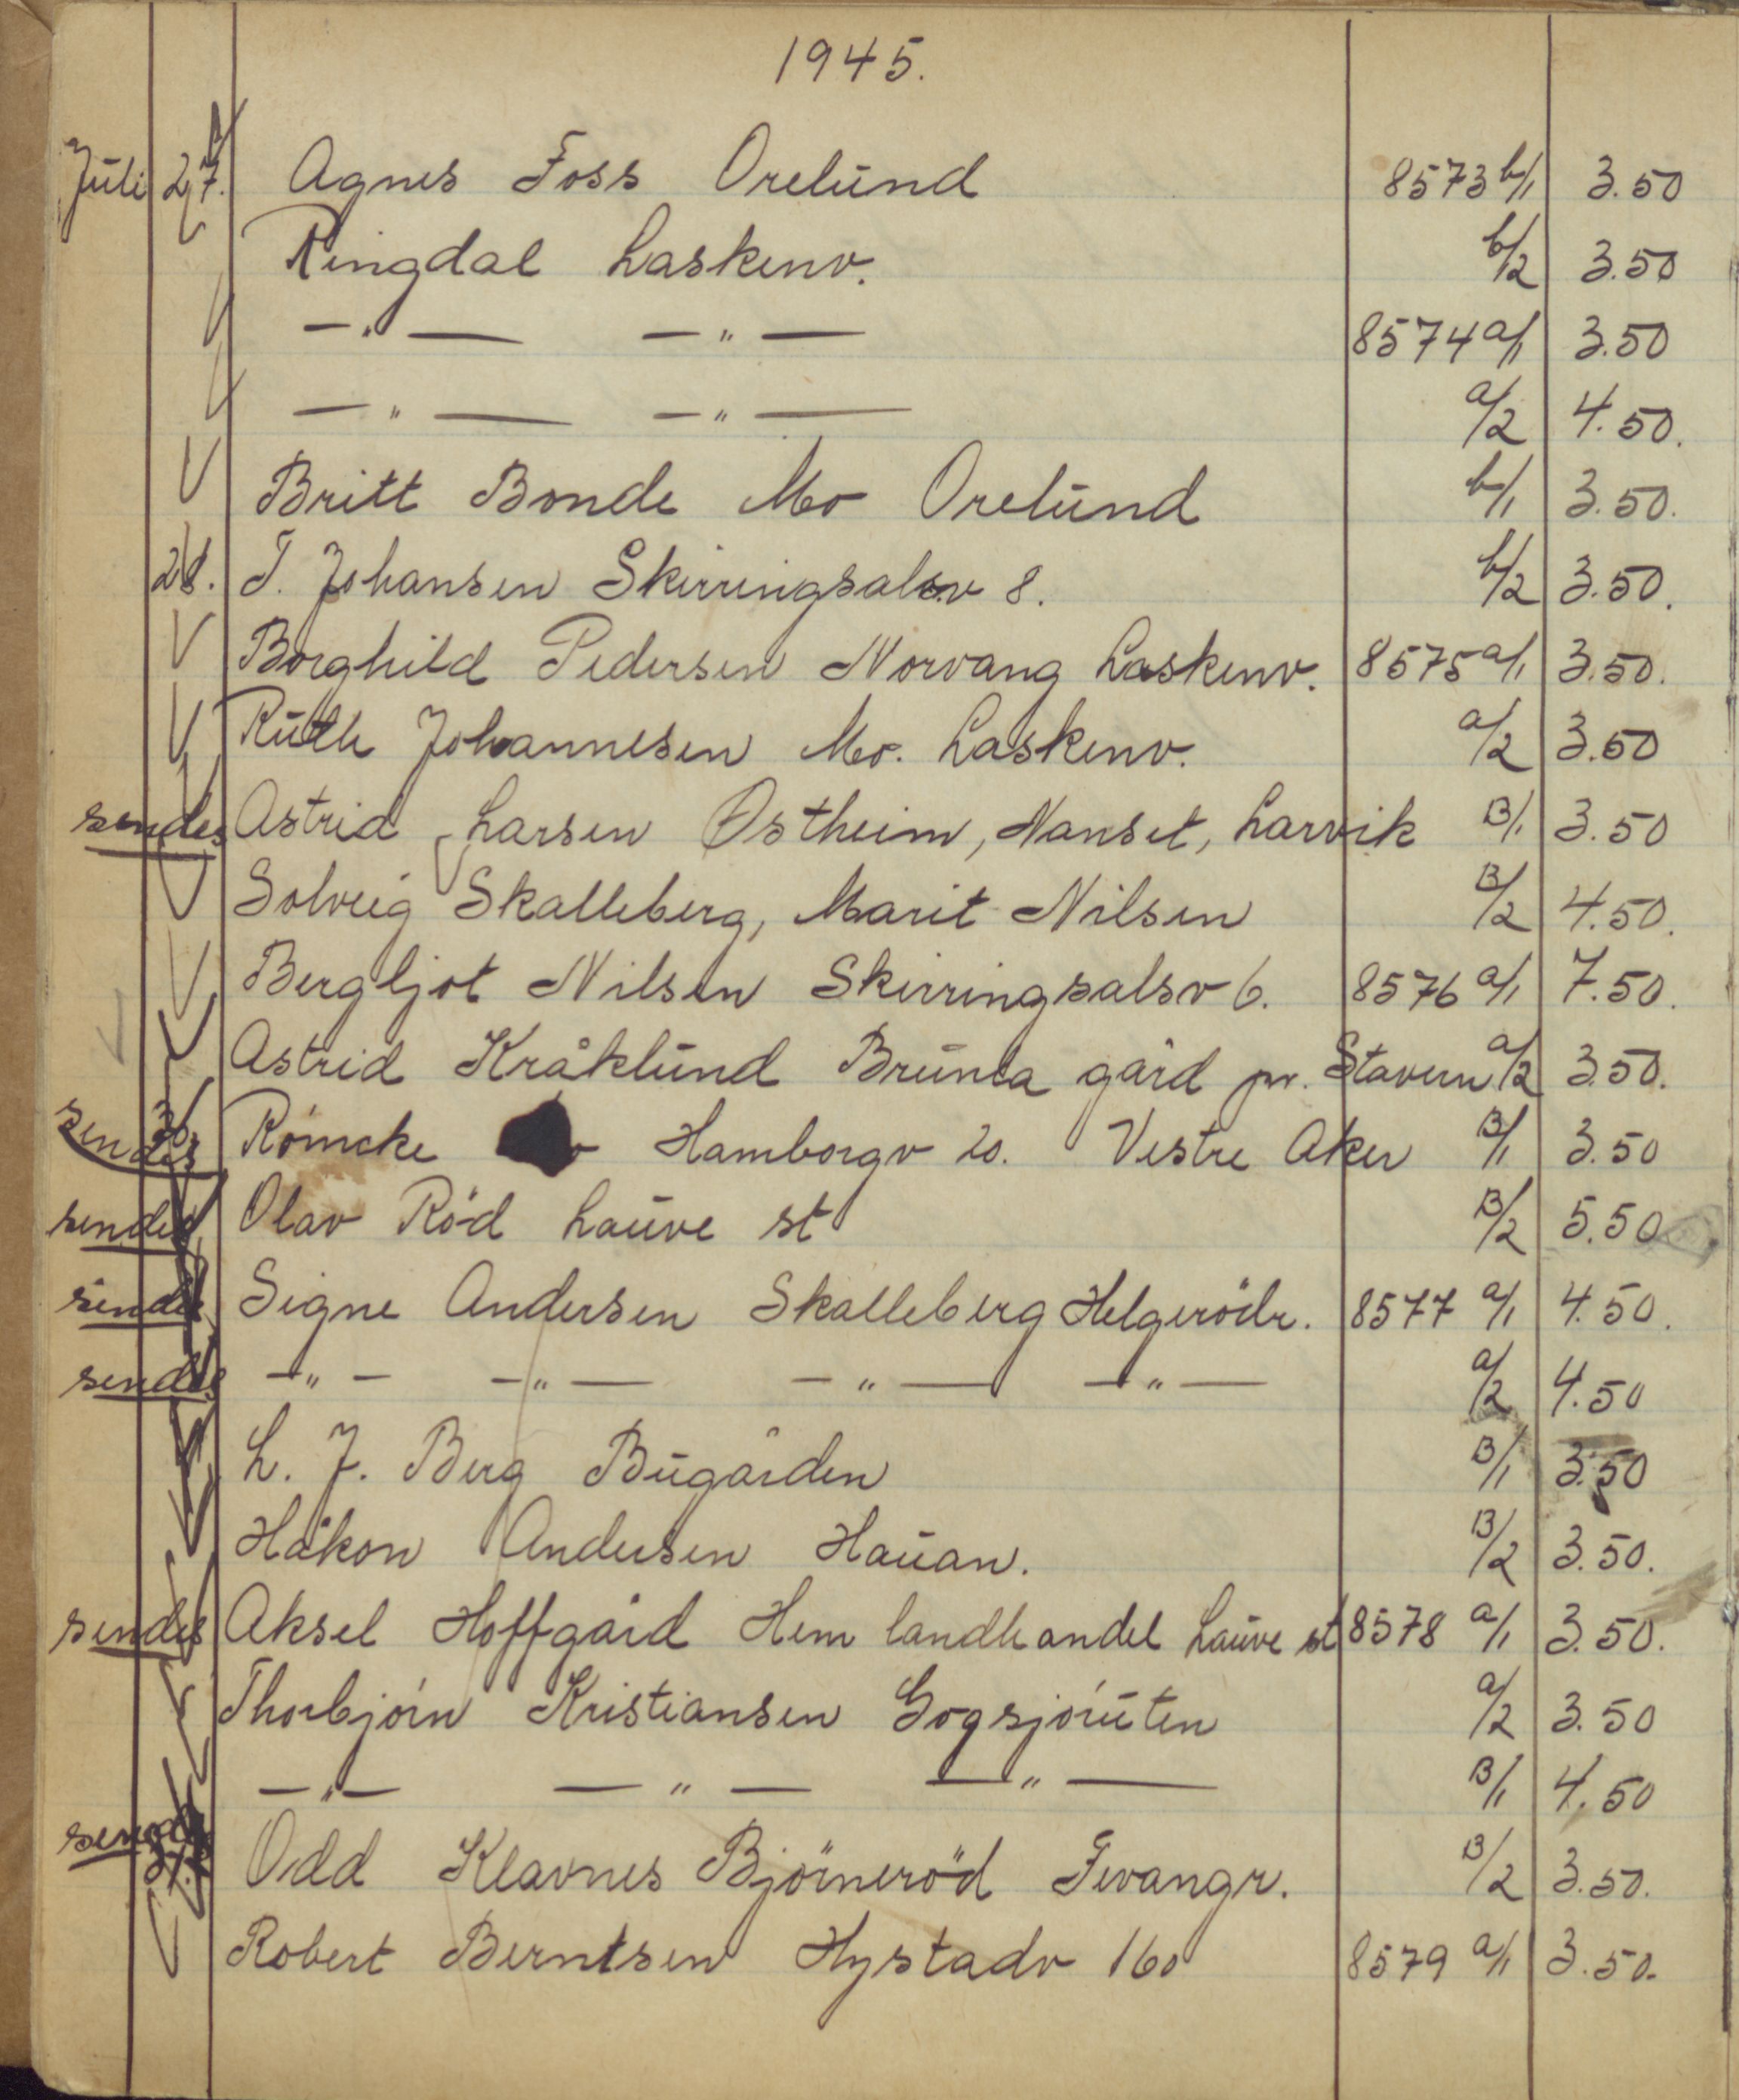 1945.
Juli 27. Agnes Foss Orelund 8573 b/1 3.50
Ringdal Laskenv. b/2 3.50
—„— —„— 8574 a/1 3.50
—„— —„— a/2 4.50.
Britt Bonde Mo Orelund b/1 3.50.
28. T. Johansen Skirringsalsv 8. b/2 3.50.
Borghild Pedersen Norvang Laskenv. 8575 a/1 3.50.
Ruth Johannesen Mo. Laskenv. a/2 3.50
sendes Astrid Larsen Østheim, Nanset, Larvik B/1 3.50
Solveig Skalleberg, Marit Nilsen B/2 4.50.
Bergljot Nilsen Skirringsalsv 6. 8576 a/1 7.50.
Astrid Kråklund Brunla gård pr. Stavern a/2 3.50.
sendes 30. Römcke Hamborgv 20. Vestre Aker B/1 3.50
sendes Olav Röd Lauve st B/2 5.50
sendes Signe Andersen Skalleberg Helgerödr. 8577 a/1 4.50.
sendes —„— —„— —„— —„— a/2 4.50
L. J. Berg Bugården B/1 3.50
Håkon Andersen Hauan. B/2 3.50.
sendes Aksel Hoffgård Hem landhandel Lauve st 8578 a/1 3.50.
Thorbjörn Kristiansen Gogsjöruten a/2 3.50
—„— —„— —„— B/1 4.50
sendes 31. Odd Klavnes Björneröd Fevangr. B/2 3.50.
Robert Berntsen Hystadv 160 8579 a/1 3.50.